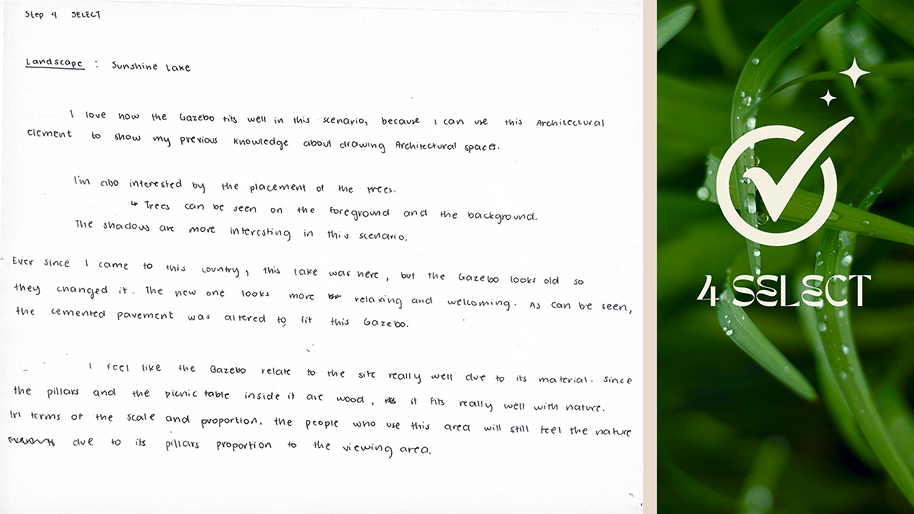 Step 4 SELECT
Landscape : Sunshine Lake
I love how the Gazebo fits well in this scenario, because I can use this Architectural
element to show my previous knowledge about drawing Architectural spaces.
I'm also interested by the placement of the trees.
↳ Trees can be seen on the foreground and the background.
The shadows are more interesting in this scenario.
Ever since I came to this country, this lake was here, but the Gazebo looks old so
they changed it. The new one looks more relaxing and welcoming. As can be seen,
the cemented pavement was altered to fit this Gazebo.
I feel like the Gazebo relate to the site really well due to its material. Since
the pillars and the picnic table inside it are wood, it fits really well with nature.
In terms of the scale and proportion, the people who use this area will still feel the nature
due to its pillars proportion to the viewing area.
4 SELECT